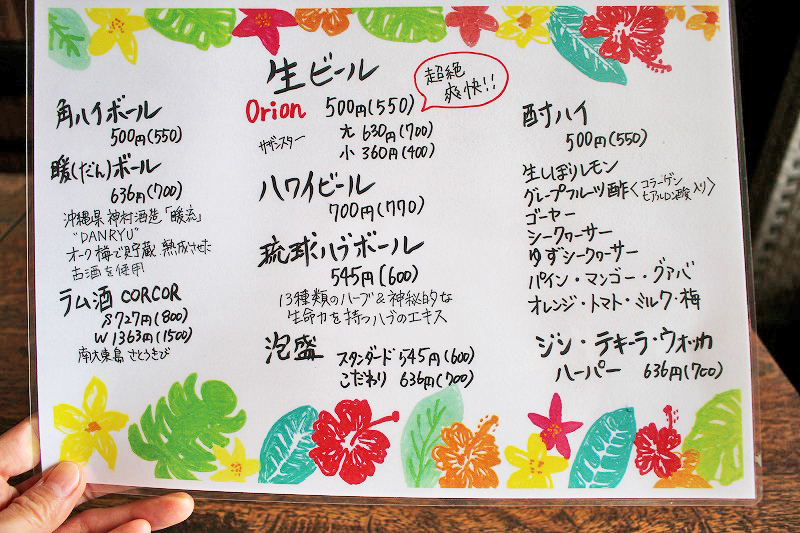 角ハイボール
500円(550)
暖(だん)ボール
636円(700)
沖縄県 神村酒造「暖流」
"DANRYU"
オーク樽で貯蔵 熟成させた
古酒を使用
ラム酒 CORCOR
S 727円(800)
W 1363円(1500)
南大東島 さとうきび
生ビール
Orion 500円(550)
超絶
爽快!!
サザンスター 大 630円(700)
小 360円(400)
ハワイビール
700円(770)
琉球ハブボール
545円(600)
13種類のハーブ&神秘的な
生命力を持つハブのエキス
泡盛 スタンダード 545円(600)
こだわり 636円(700)
酎ハイ
500円(550)
生しぼりレモン
グレープフルーツ酢〈コラーゲン ヒアルロン酸 入り〉
ゴーヤー
シークヮーサー
ゆずシークヮーサー
パイン・マンゴー・グァバ
オレンジ・トマト・ミルク・梅
ジン・テキーラ・ウォッカ
ハーパー 636円(700)